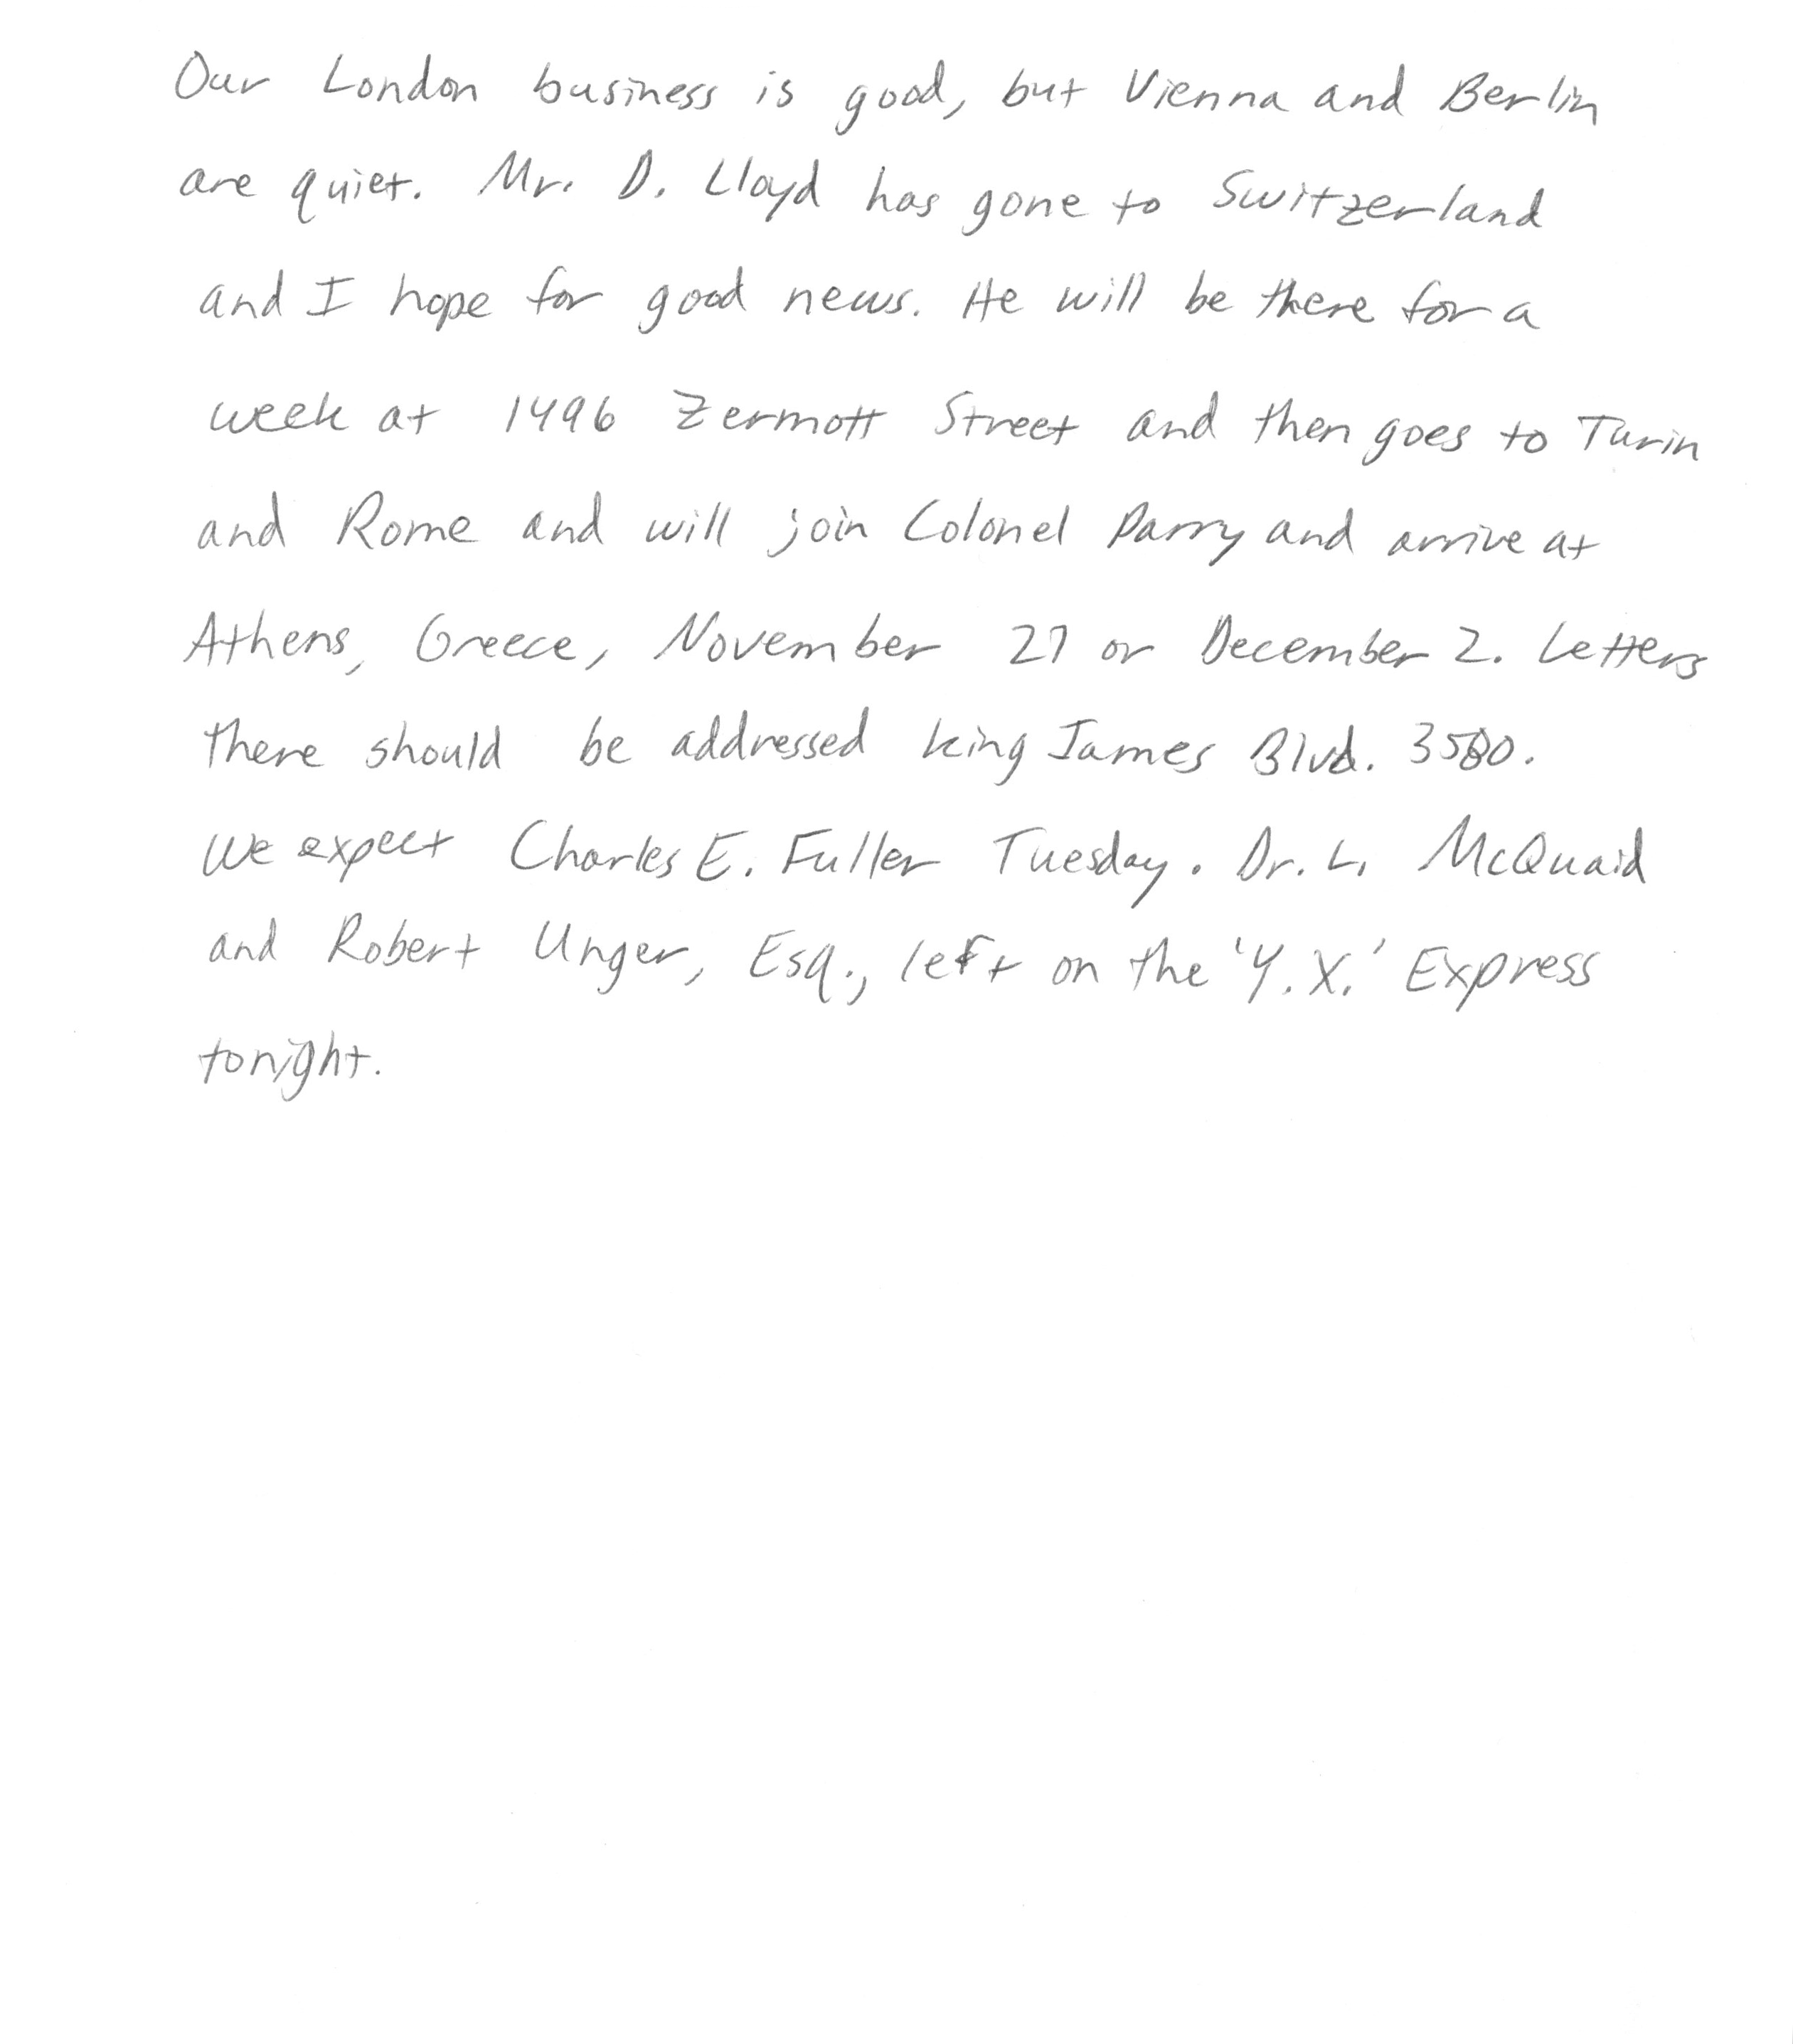 Our London business is good, but Vienna and Berlin
are quiet. Mr. D. Lloyd has gone to Switzerland
and I hope for good news. He will be there for a
week at 1496 Zermott Street and then goes to Turin
and Rome and will join Colonel Parry and arrive at
Athens, Greece, November 27 or December 2. Letters
there should be addressed King James Blvd. 3580.
We expect Charles E. Fuller Tuesday. Dr. L. McQuaid
and Robert Unger, Esq., left on the 'Y. X.' Express
tonight.